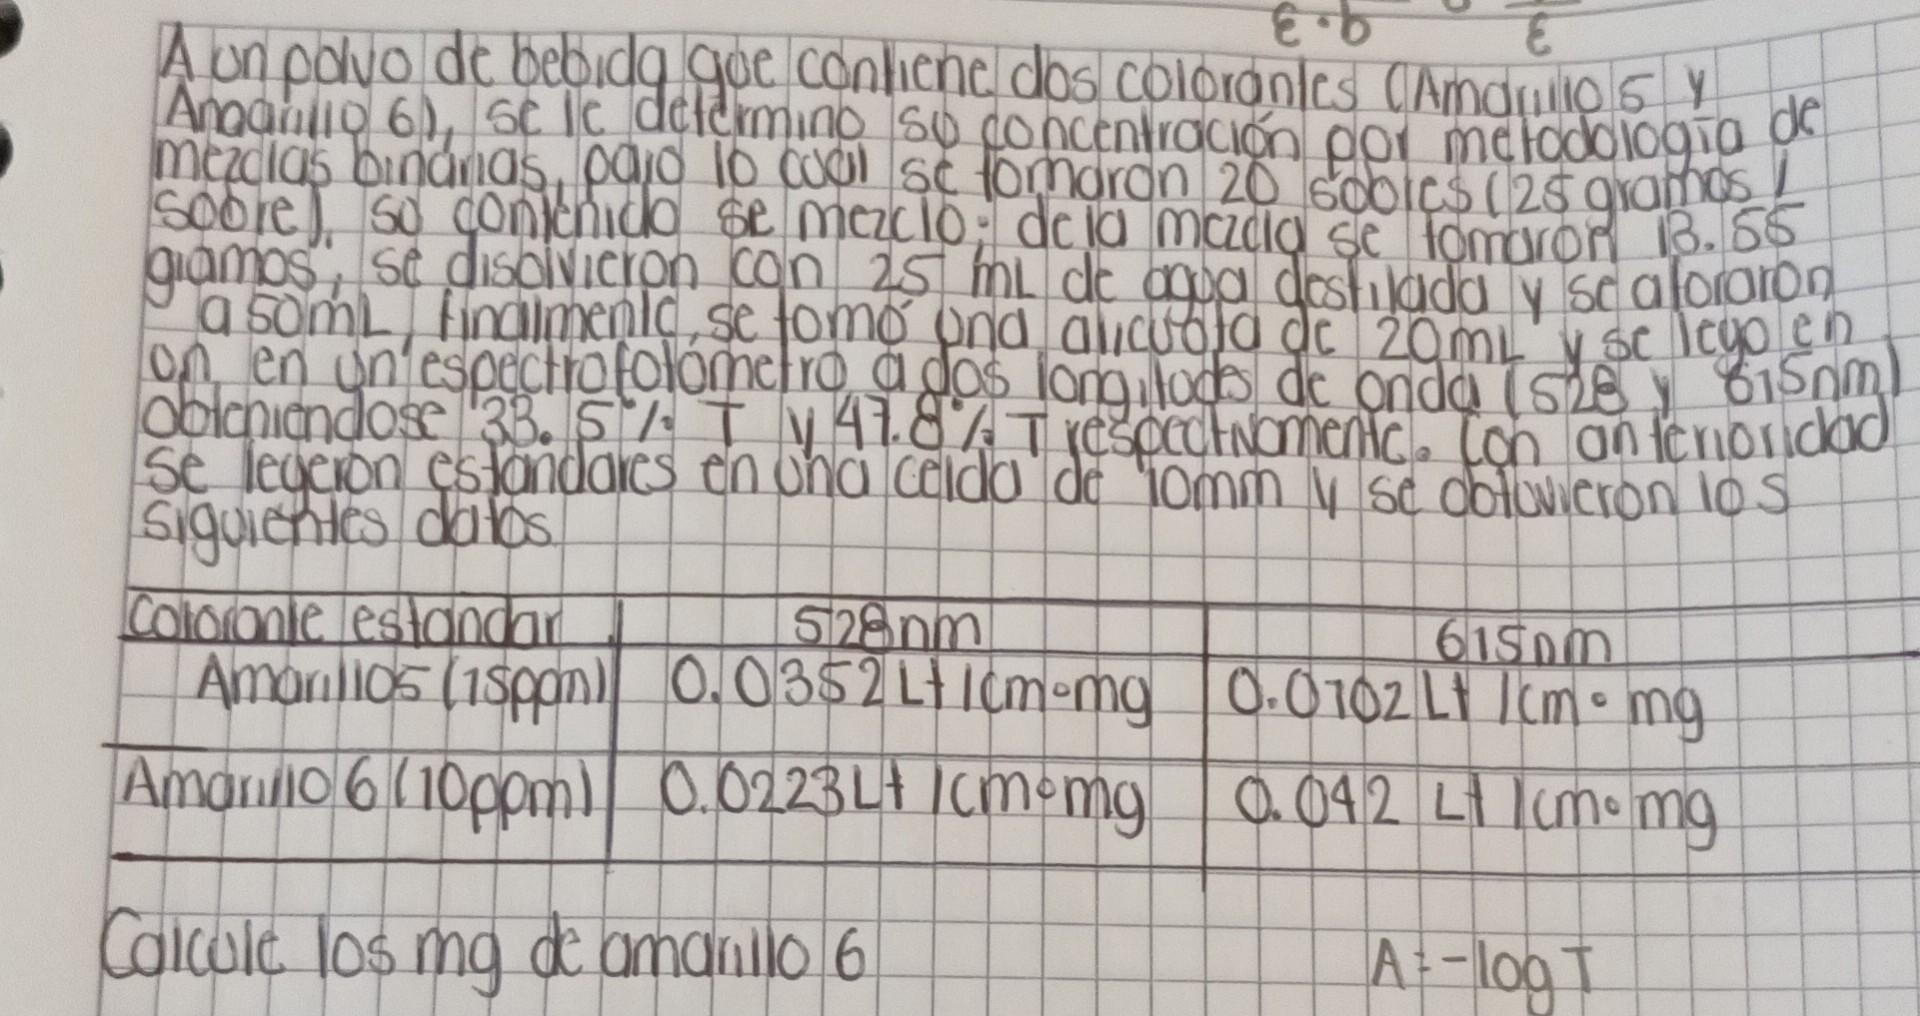 A un polvo de bebida que contiene dos colorantes (Amarillo 5 y
Amarillo 6), se le determino su concentración por metodologia de
mezclas binarias, para lo cual se tomaron 20 sobres (25 gramos /
sobre). su contenido se mezclo; de la mezcla se tomaron 13.55
gramos, se disolvieron con 25 mL de agua destilada y se aforaron
a 50mL, finalmente, se tomó una alicuota de 20mL y se leyo en
un en un espectrofotometro a dos longitudes de onda (528 y 615nm)
obteniendose 33.5% T y 47.8% T respectivamente. Con anterioridad
se leyeron estandares en una celda de 10mm y se obtuvieron los
siguientes datos
Colorante estandar 528nm 615nm
Amarillo5 (15ppm) 0.0352 Lt /cm·mg 0.0702 Lt /cm·mg
Amarillo 6 (10ppm) 0.0223 Lt /cm·mg 0.042 Lt /cm·mg
Calcule los mg de amarillo 6 A=-log T